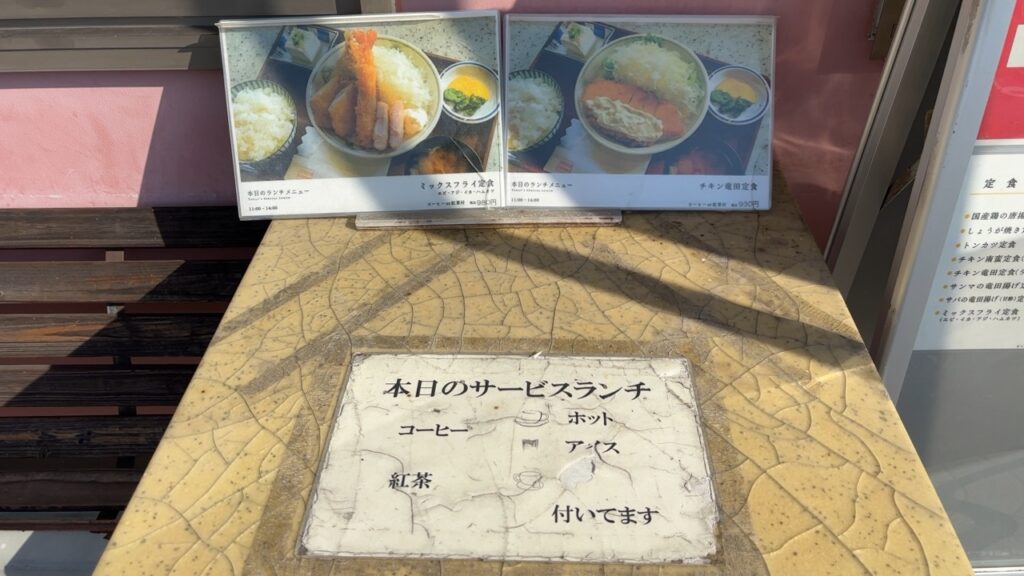 本日のランチメニュー
TODAY'S SPECIAL LUNCH
11:00 - 14:00
ミックスフライ定食
エビ・アジ・イカ・ハムカツ
コーヒーor紅茶付 税込980円
本日のランチメニュー
TODAY'S SPECIAL LUNCH
11:00 - 14:00
チキン竜田定食
コーヒーor紅茶付 税込930円
定食
国産鶏の唐揚
しょうが焼き
トンカツ定食
チキン南蛮定食
チキン竜田定食
サンマの竜田揚げ
サバの竜田揚げ(甘酢)定
ミックスフライ定食
(エビ・イカ・アジ・ハムカツ)
本日のサービスランチ
コーヒー ホット
アイス
紅茶
付いてます